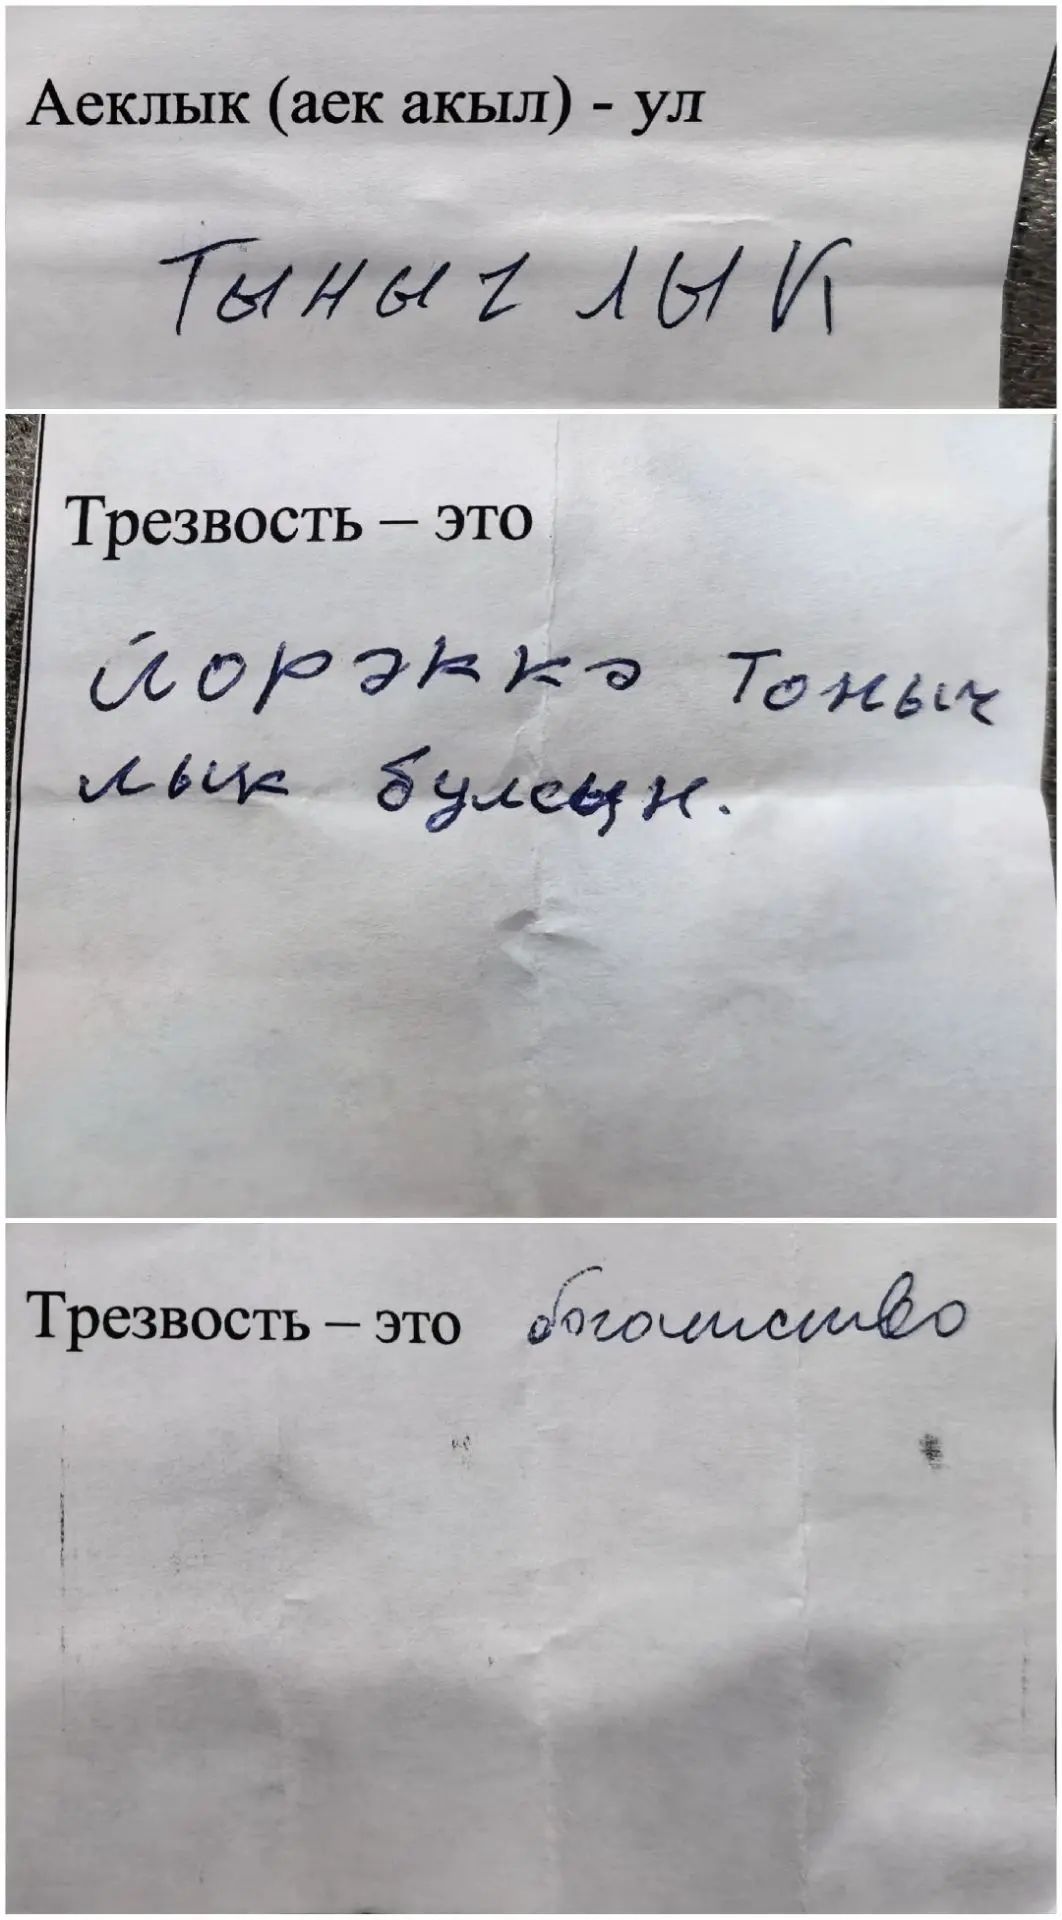 Аеклык (аек акыл) - ул
Тынычлык
Трезвость – это
йорәккә Тоныч
лык булсын.
Трезвость – это богатство